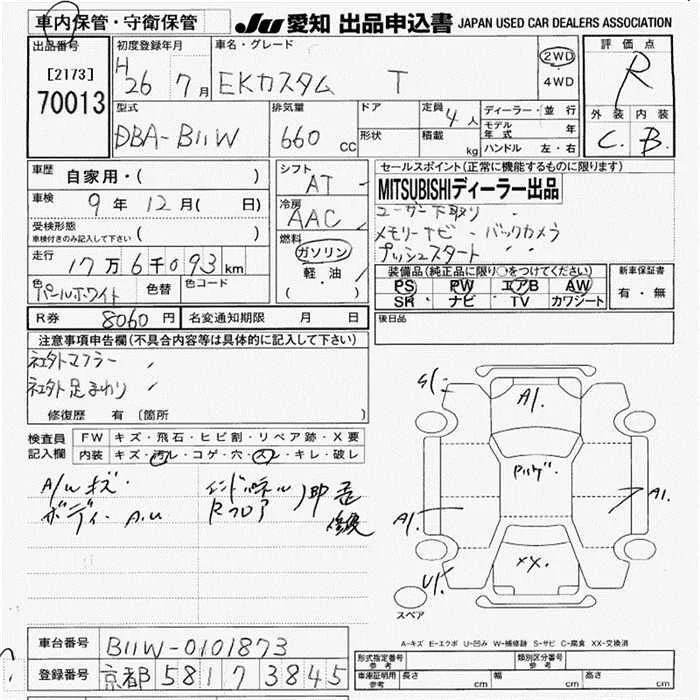 車内保管・守衛保管
JU 愛知 出品申込書 JAPAN USED CAR DEALERS ASSOCIATION
出品番号
[2173]
70013
初度登録年月
H 26 7月
車名・グレード
EKカスタム T
2WD
4WD
評価点
R
型式
DBA-B11W
排気量
660 cc
ドア
形状
定員
4人
積載
kg
ディーラー・並行
モデル年式 年
ハンドル 左・右
外装 内装
C. B.
車歴 自家用・( )
車検 9年 12月( 日)
受検形態
車検付きのみ記入して下さい ( )
走行 17万6千093km
色 パールホワイト 色替 色コード
R券 8060円 名変通知期限 月 日
シフト
AT
冷房
AAC
燃料
ガソリン
軽・油
( )
セールスポイント(正常に機能するものに限ります)
MITSUBISHIディーラー出品
ユーザー下取り
メモリーナビ バックカメラ
プッシュスタート
装備品(純正品に限り○をつけてください)
PS PW エアB AW
SR ナビ TV カワシート
新車保証書
有・無
後日品
注意事項申告欄(不具合内容等は具体的に記入して下さい)
社外マフラー
社外足まわり
修復歴 有 〔箇所 〕
検査員記入欄
FW キズ・飛石・ヒビ割・リペア跡・X要
内装 キズ・汚レ・コゲ・穴・スレ・キレ・破レ
A/u キズ
ボディ A.U
インドパネル
Rフロア
A1.
A1.
A1.
XX.
スペア
A-キズ E-エクボ U-凹み W-補修跡 S-サビ C-腐食 XX-交換済
車台番号 B11W-0101873
登録番号 京都 581 ワ 3845
形式指定番号 参考
類別区分番号 参考
車庫証明用 参考 長さ cm 幅 cm 高さ cm